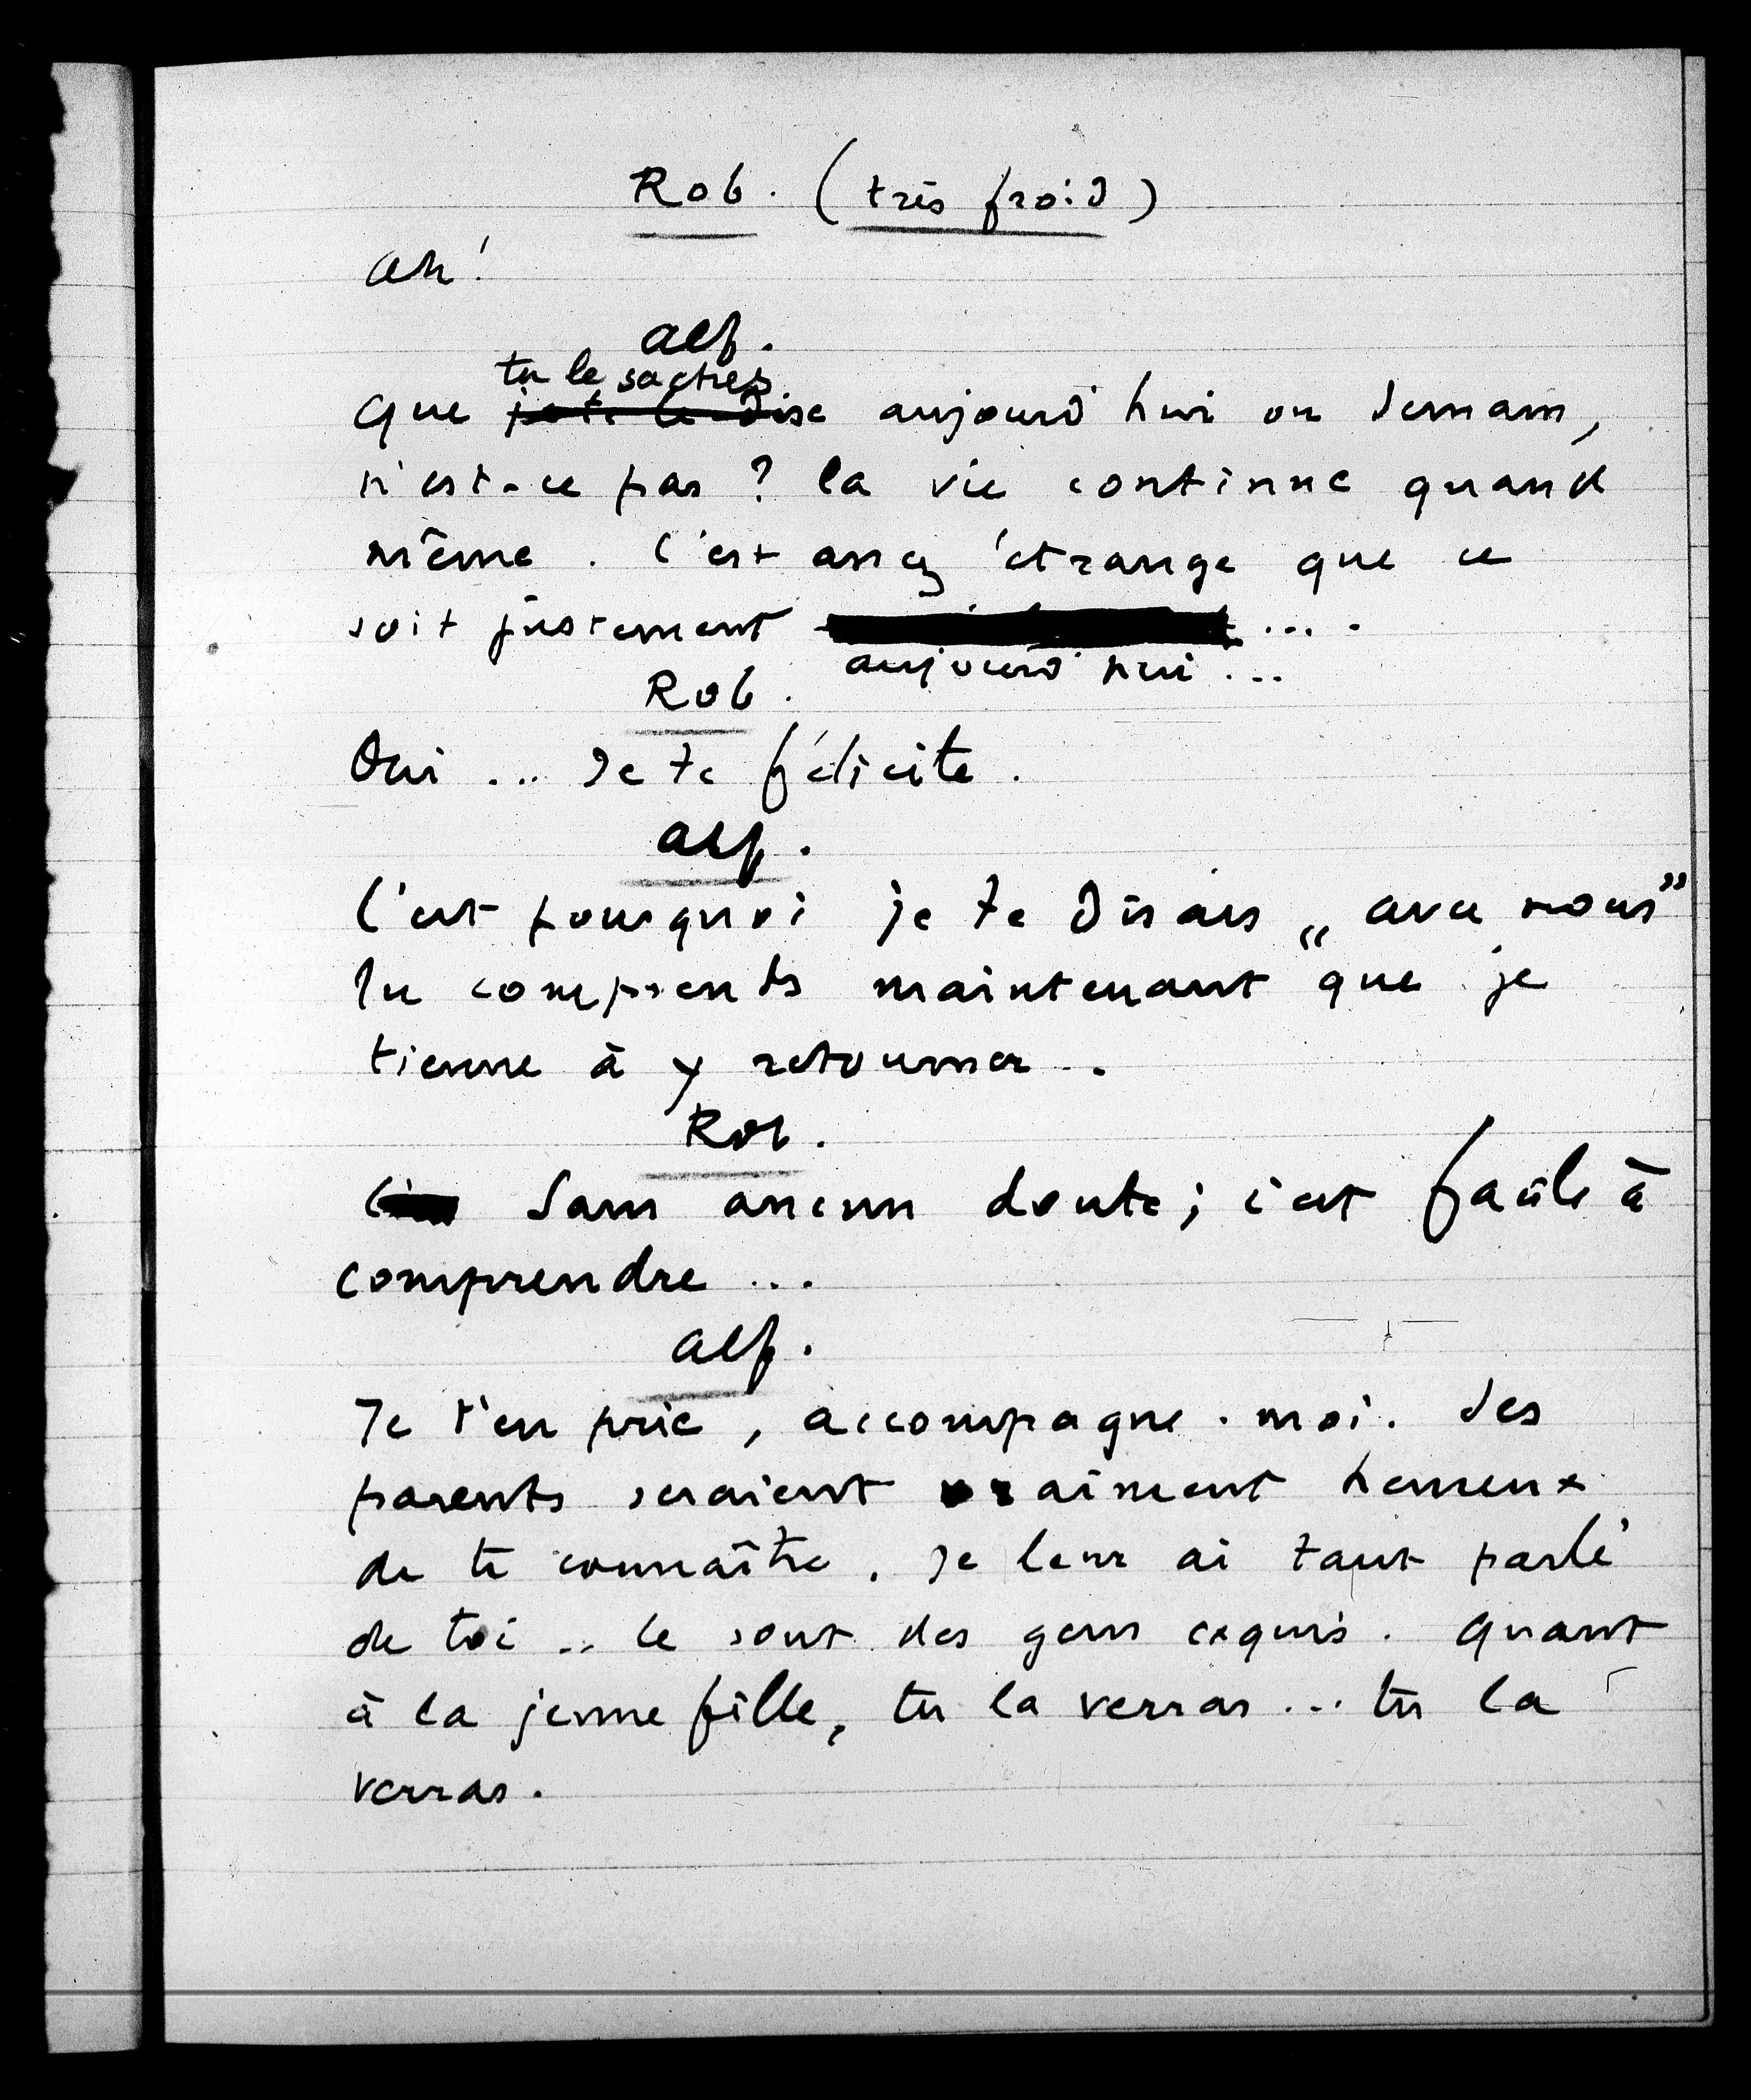 Rob. (très froid)
Ah!
Alf.
tu le saches
Que je te le dise aujourd'hui ou demain,
n'est-ce pas ? la vie continue quand
même. C'est assez étrange que ce
soit justement ....
aujourd'hui...
Rob.
Oui ... Je te félicite.
Alf.
C'est pourquoi je te disais „avec nous”
Tu comprends maintenant que je
tienne à y retourner..
Rob.
Sans aucun doute; c'est facile à
comprendre ...
Alf.
Je t'en prie, accompagne-moi. Ses
parents seraient vraiment heureux
de te connaître. Je leur ai tant parlé
de toi .. Ce sont des gens exquis. Quant
à la jeune fille, tu la verras ... tu la
verras.